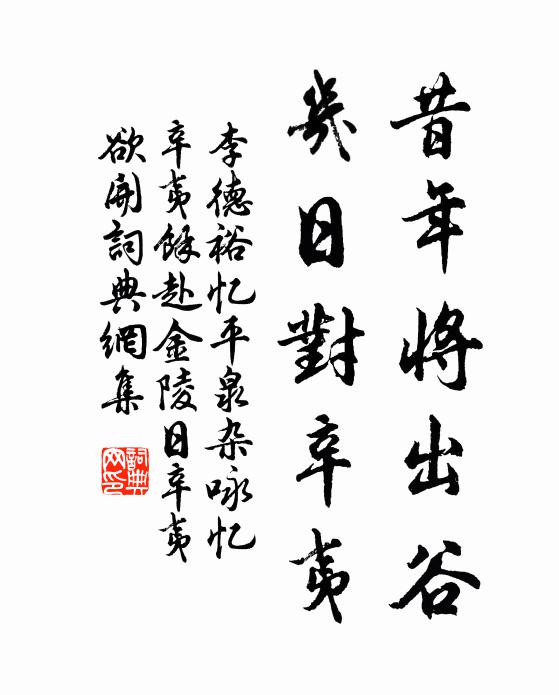 昔年将出谷
幾日對辛夷
李德裕忆平泉杂咏忆
辛夷餘赴金陵日辛夷
欲開詞典網集
詞典网印